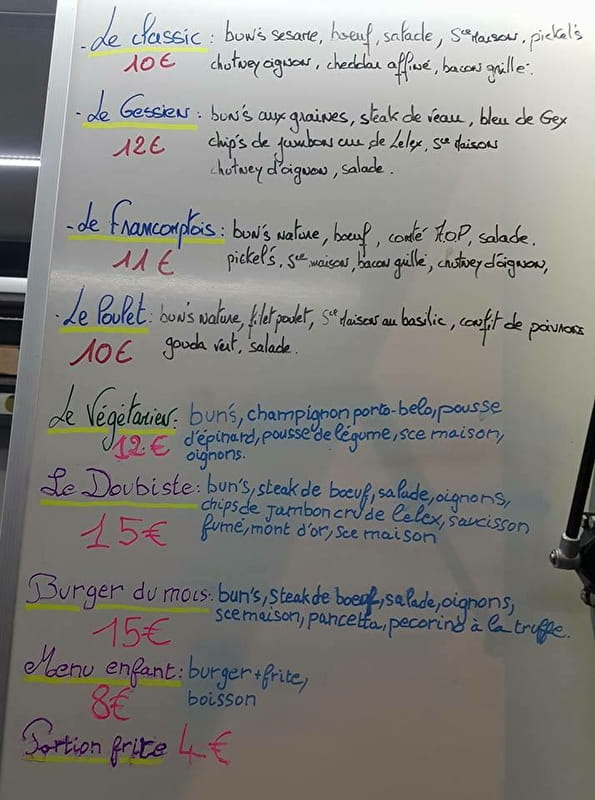 - Le classic : bun's sesame, boeuf, salade, Sce Maison, pickel's
10€ chutney oignon, cheddar affiné, bacon grillé.
- Le Gessien : bun's aux graines, steak de veau, bleu de Gex
12€ chip's de jambon cru de Lelex, Sce Maison
chutney d'oignon, salade.
- Le Francomptois : bun's nature, boeuf, comté A.O.P, salade.
11€ pickel's, Sce maison, bacon grillé, chutney d'oignon,
- Le Poulet : bun's nature, filet poulet, Sce Maison au basilic, confit de poivrons
10€ gouda vert, salade.
Le Végétarien : bun's, champignon porto-belo, pousse
12€ d'épinard, pousse de légume, sce maison,
oignons.
Le Doubiste : bun's, steak de boeuf, salade, oignons,
15€ chips de jambon cru de lelex, saucisson
fumé, mont d'or, sce maison
Burger du mois : bun's, steak de boeuf, salade, oignons,
15€ sce maison, pancetta, pecorino à la truffe.
Menu enfant : burger + frite,
8€ boisson
Portion frite 4€